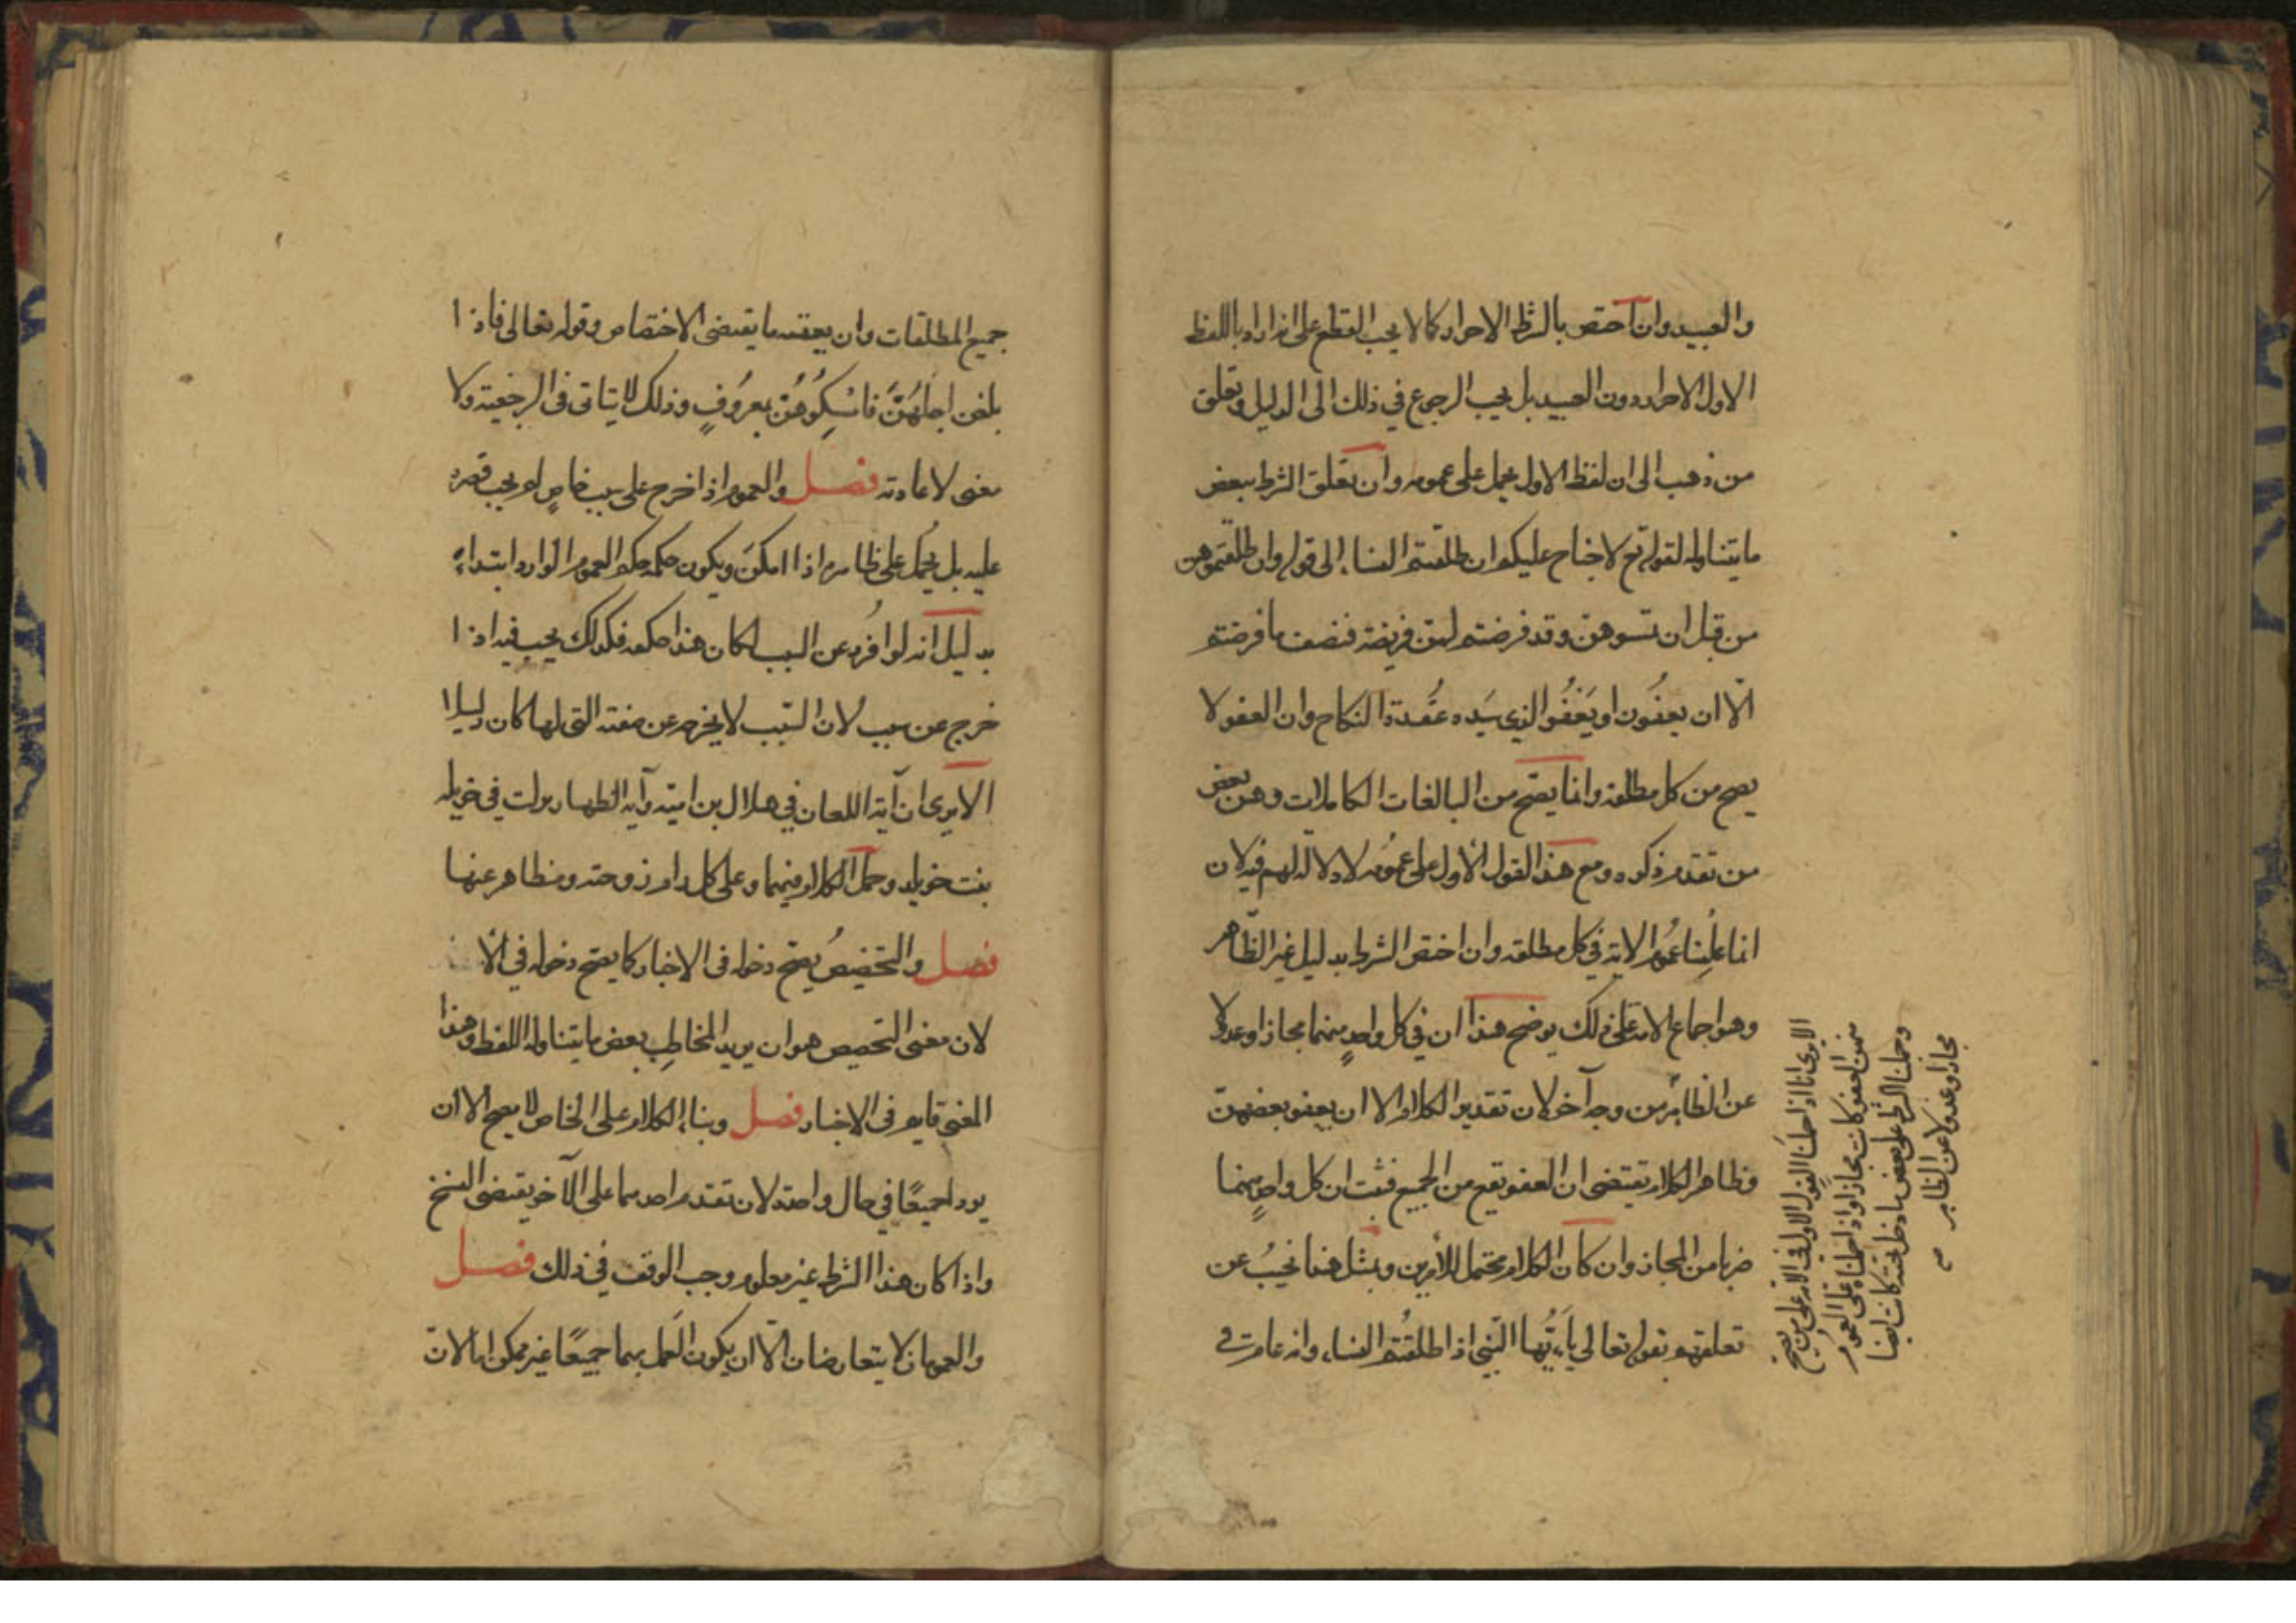 والعبيد وان اختص بالشرط الاحرار كما لا يجب القطع على انه اراد باللفظ
الاول الاحرار دون العبيد بل يجب الرجوع في ذلك الى الدليل وتعلق
من ذهب الى ان لفظ الاول يحمل على عمومه وان تعلق الشرط ببعض
ما يتناوله لقوله تع لا جناح عليكم ان طلقتم النساء الى قوله وان طلقتموهن
من قبل ان تمسوهن وقد فرضتم لهن فريضة فنصف ما فرضتم
الّا ان يعفُون او يَعْفُو الذي بيَده عُقدة النكاح وان العفو لا
يصح من كل مطلقه وانما يصّح من البالغات الكاملات وهن بعض
من تقدم ذكره ومع هذا القول الأول على عمُومه لا دلالة لهم فيه لان
انما عَلِمنا عمُوم الاية في كل مطلقه وان اختص الشرط بدليل غير الظّاهر
وهو اجماع الامة على ذلك يوضح هذا ان في كل واحدٍ منهما مجازا وعدولا
عن الظاهر من وجه آخر لان تقدير الكلام الا ان يعفو بعضهن
وظاهر الكلام يقتضى ان العفو يقع من الجميع فثبت ان كل واحدٍ منهما
ضربا من المجاز وان كان الكلام محتمل للأمرين وبمثل هذا نجيبُ عن
تعلقهم بقوله تعالى يا ايُّها النّبي اذا طلقتُم النساء وانه عام في
الا يرى انا اذا حملنا القول الاول في الاية على من يصح
منهن العفو كان مجازا واذا حملناه على العموم
وحملنا الشرط على بعض ما دخل تحته كان ايضا
مجازا وعدولا عن الظاهر
جميع المطلقات وان يعقبه ما يقتضى الاختصاص وقوله تعالى فاذا
بلغن اجلهُنّ فامْسِكُوهُنّ بمعرُوفٍ وذلك لا يتاتى في الرجعية ولا
معنى لاعادته فصل والعموم اذا خرج على سبب خاصٍ لم يجب قصره
عليه بل يُحمل على ظاهره اذا امكنَ ويكون حكمه حكم العموم الوارد ابتداءً
بدليل انه لو افُرد عن السبب لكان هذا حكمه فكذلك يجب فيه اذا
خرج عن سبب لان السّبب لا يخرجه عن صفته التى لها كان دليلا
الا يرى ان آية اللعان في هلال بن اميّه وآيه الظهار نزلت في خويله
بنت خويلد وحمل الكلام فيهما وعلى كل رام زوجته ومظاهر عنها
فصل والتخصيصُ يصّح دخوله في الاخبار كما يصّح دخوله في الأ
لان معنى التخصيص هو ان يريد المخاطِب بعض ما يتناوله اللفظ وهذا
المعنى قايم في الاخبار فصل وبناء الكلام على الخاص لا يصح الا ان
يردا جميعًا في حال واحدة لان تقدم احدهما على الآخر يقتضى النسخ
واذا كان هذا الشرط غير معلوم وجب الوقف في ذلك فصل
والعمومان لا يتعارضان الّا ان يكون العَمل بهما جميعًا غير ممكن اما لان